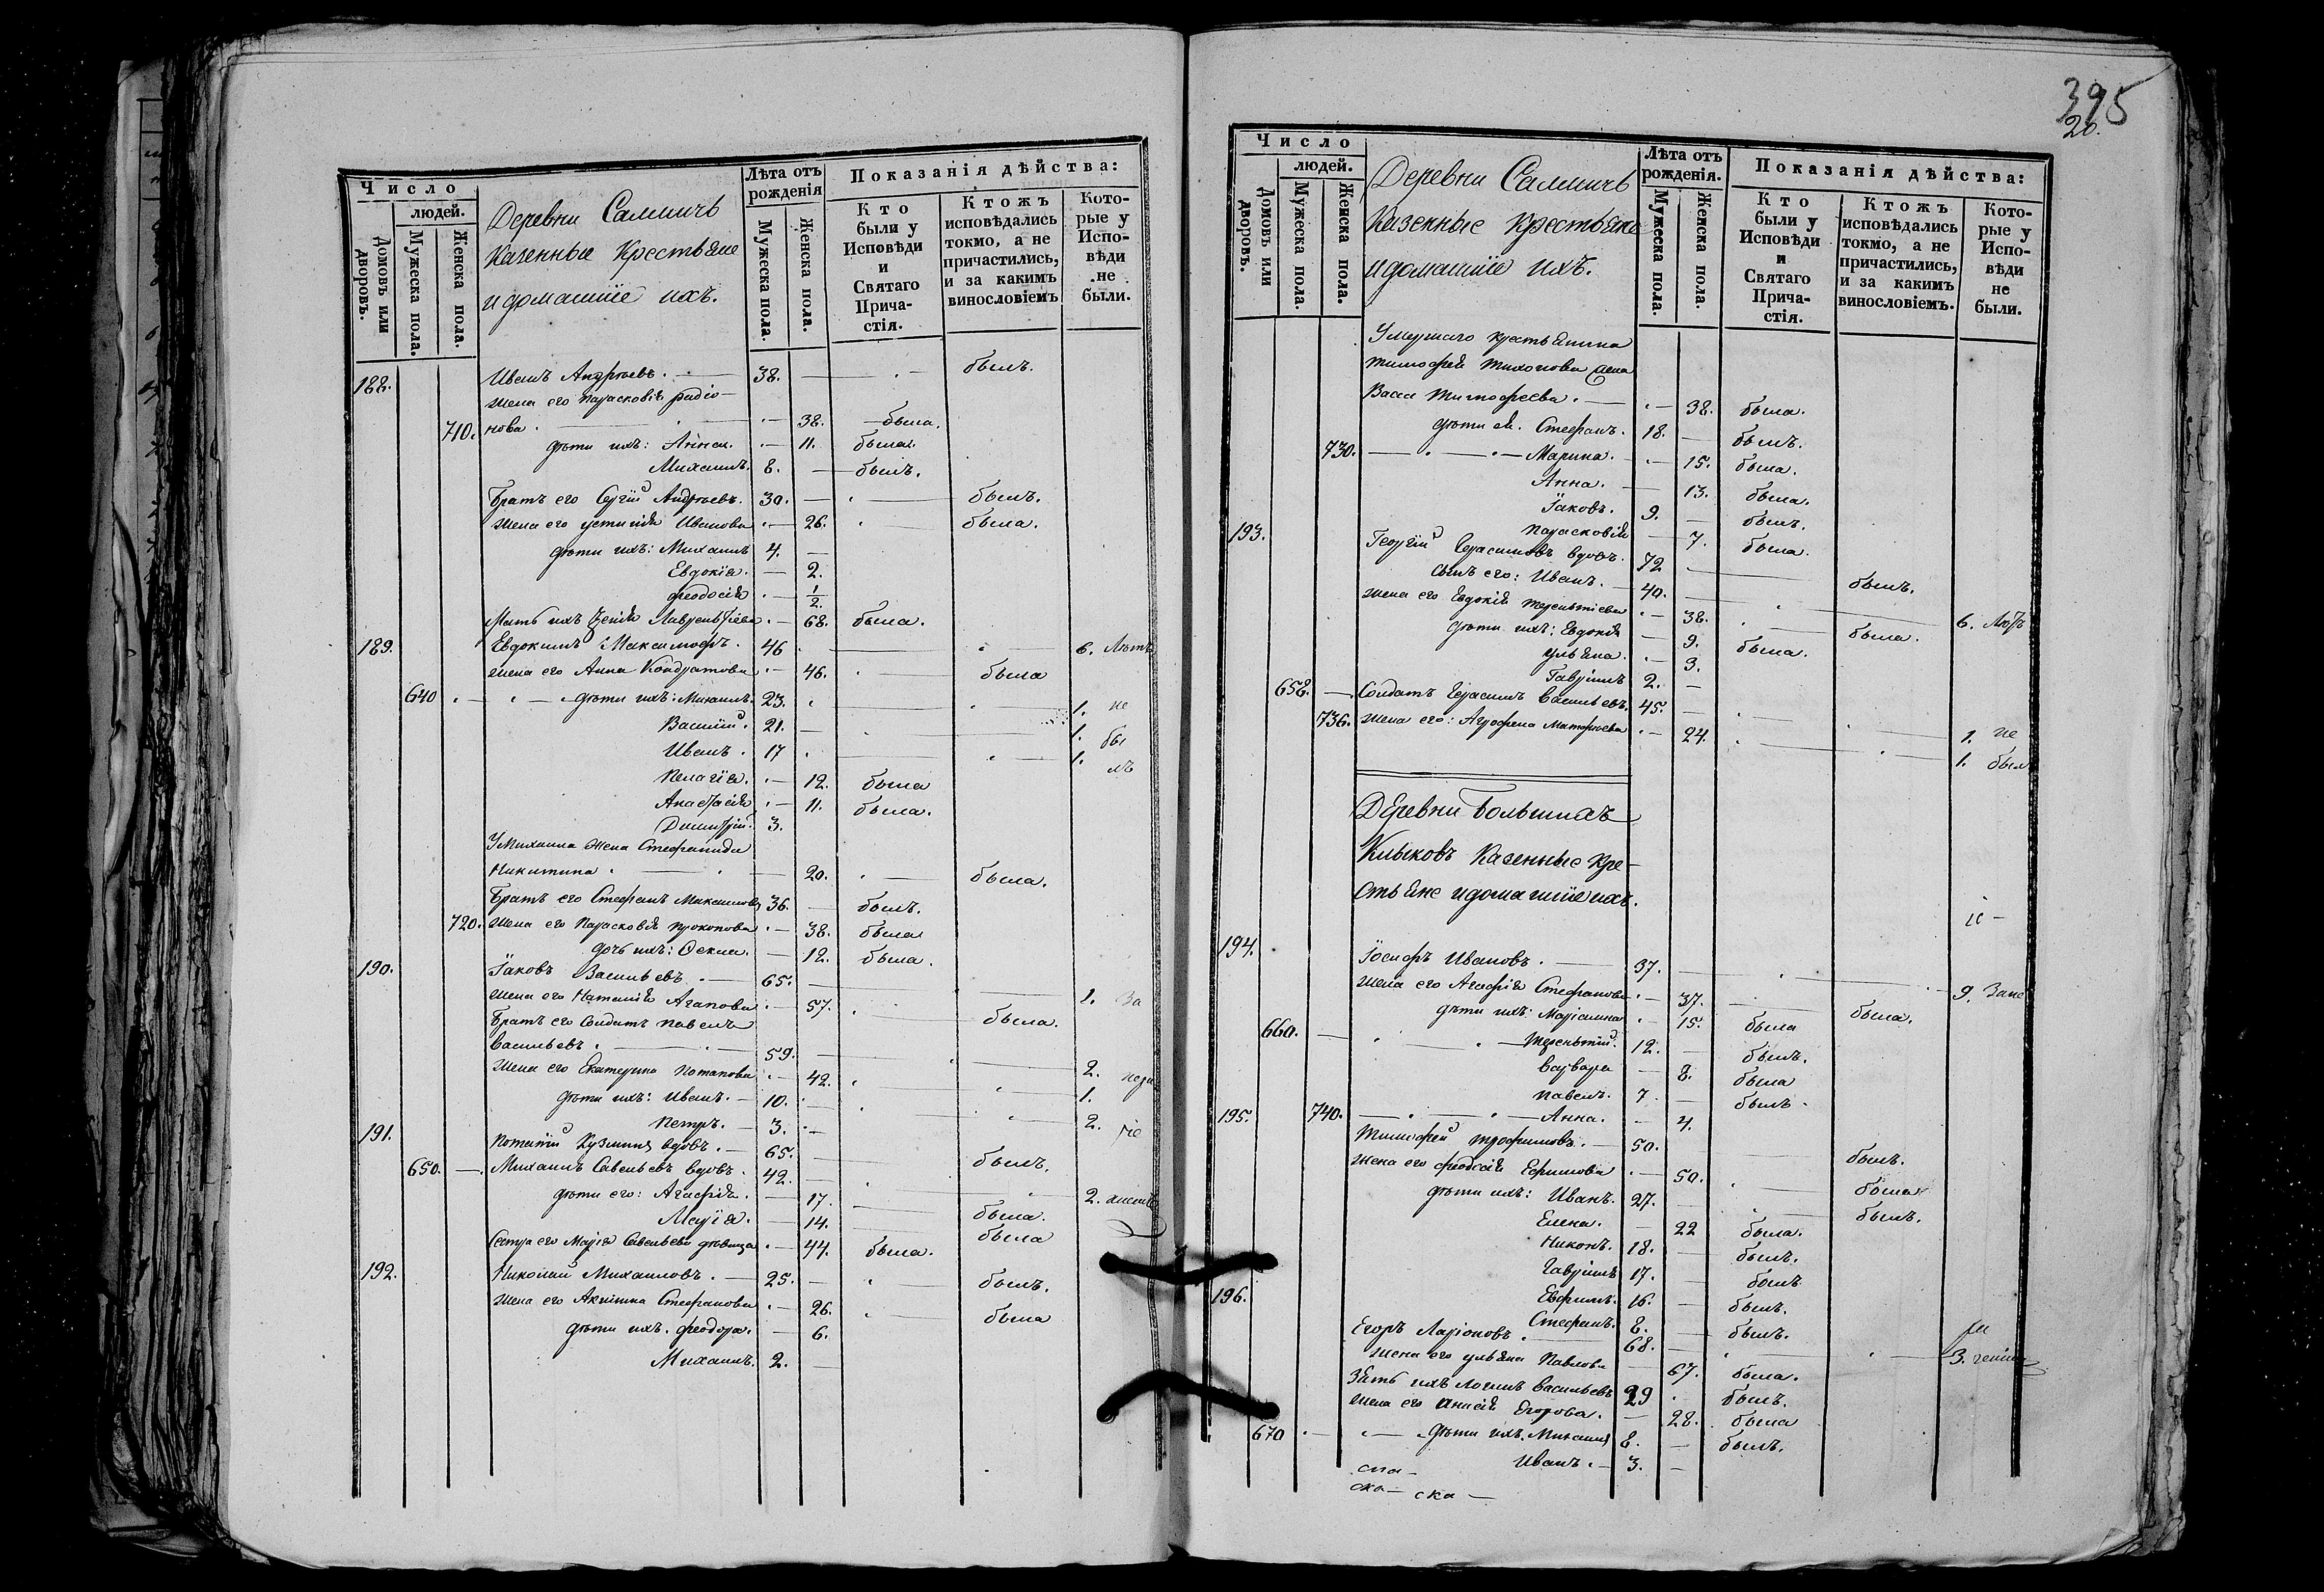 Число
людей.
Домовъ или дворовъ.
Мужеска пола.
Женска пола.
Деревни Саммичъ
Казенные Крестьяне
и домашніе ихъ.
Лѣта отъ рожденія
Мужеска пола.
Женска пола.
Показанія дѣйства:
Кто были у Исповѣди и Святаго Причастія.
Ктожъ исповѣдались токмо, а не причастились, и за какимъ винословіемъ
Которые у Исповѣди не были.
188. Иванъ Андреевъ. 38. былъ.
жена его Парасковія Радіо-
710. нова. 38. была.
дѣти ихъ: Анна. 11. была.
Михаилъ. 8. былъ.
Братъ его Сергій Андреевъ. 30. былъ.
жена его Устинія Иванова 26. была.
дѣти ихъ: Михаилъ 4.
Евдокія. 2.
Феодосія 1/2.
Мать ихъ Ксенія Лаврентіева 68. была.
189. Евдокимъ Максимовъ. 46 6. Лѣтъ
жена его Анна Кондратова 46. была
640 дѣти ихъ: Михаилъ. 23. 1. не
Василій. 21. 1. бы
Иванъ. 17 1. лъ
Пелагія. 12. была
Анастасія 11. была.
Димитрій. 3.
У Михаила жена Степанида
Никитина 20. была.
Братъ его Стефанъ Максимовъ 36. былъ.
720. жена его Парасковія Прокопова 38. была
дочь ихъ: Текла. 12. была.
190. Іаковъ Васильевъ. 65. 1. За
жена его Наталія Агапова 57. была.
Братъ его Солдатъ Павелъ
Васильевъ. 59. 2.
жена его Екатерина Потапова 42. 1.
дѣти ихъ: Иванъ. 10. 2.
Петръ. 3.
191. Кузминъ вдовъ. 65. былъ.
650. Михаилъ Савельевъ вдовъ. 42. 2.
дѣти его: Агафія. 17. была.
Марія. 14. была
Сестра его Марія Савельева дѣвица 44. была.
192. Николай Михаиловъ. 25. былъ.
жена его Акилина Стефанова 26. была
дѣти ихъ. Феодора. 6.
Михаилъ. 2.
395
20.
Число
людей.
Домовъ или дворовъ.
Мужеска пола.
Женска пола.
Деревни Саммичъ
Казенные Крестьяне
и домашніе ихъ.
Лѣта отъ рожденія.
Мужеска пола.
Женска пола.
Показанія дѣйства:
Кто были у Исповѣди и Святаго Причастія.
Ктожъ исповѣдались токмо, а не причастились, и за какимъ винословіемъ.
Которые у Исповѣди не были.
Умершаго крестьянина
Тимофея Тихонова жена
Васса Тимофеева. 38. была.
дѣти ей. Стефанъ. 18. былъ.
730. Марина. 15. была.
Анна. 13. была.
Іаковъ. 9. былъ.
Парасковія 7. была.
193. Георгій Герасимовъ вдовъ. 72 былъ.
сынъ его: Иванъ. 40. 6. Лѣтъ
жена его Евдокія Терентіева 38. была.
дѣти ихъ: Евдокія 9. была.
Ульяна. 3.
Гавріилъ 2.
658. Солдатъ Герасимъ Васильевъ. 45. 1. не
736. жена его: Агрофена Матфеева 24. 1. был
Деревни Большихъ
Клыковъ Казенные Кре-
стьяне и домашніе ихъ.
194. Іосифъ Ивановъ. 37. 9.
жена его Агафія Стефанова 37. была.
дѣти ихъ: Маріамна 15. была
660. Терентій. 12. былъ.
Варвара 8. была
Павелъ. 7. былъ.
740. Анна. 4.
195. Тимофей Трофимовъ. 50. былъ.
жена его Феодосія Ефимова 50. была
дѣти ихъ: Иванъ. 27. былъ.
Елена. 22 была.
Никонъ. 18. былъ.
Гавріилъ 17. былъ
Евфимъ. 16. былъ.
Стефанъ. 8. былъ.
196. Егоръ Ларіоновъ. 68. 3.
жена его Ульяна Павлова 67. была.
Зять ихъ Логинъ Васильевъ 29 былъ.
жена его Анисія Егорова. 28. была
670 дѣти ихъ. Михаилъ 8. былъ.
Иванъ. 3.
ска —